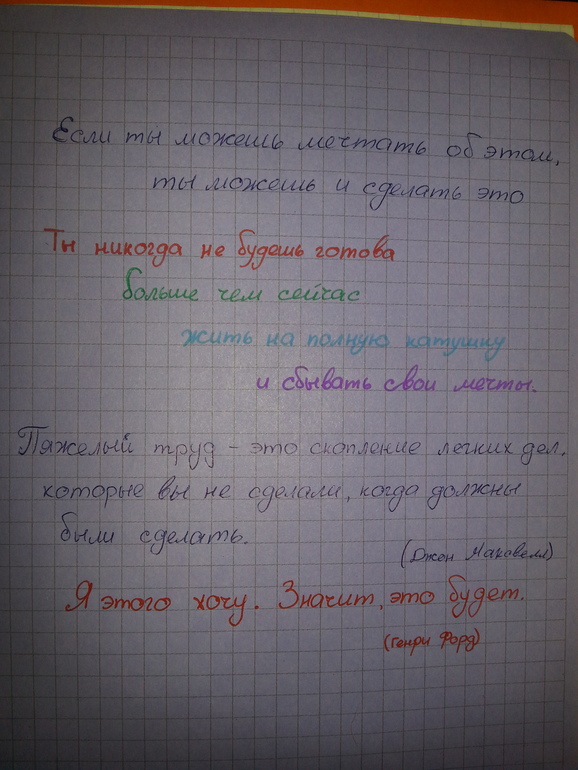 Если ты можешь мечтать об этом,
ты можешь и сделать это
Ты никогда не будешь готова
больше чем сейчас
жить на полную катушку
и сбывать свои мечты.
Тяжелый труд - это скопление легких дел,
которые вы не сделали, когда должны
были сделать.
(Джон Маковелл)
Я этого хочу. Значит, это будет.
(Генри Форд)